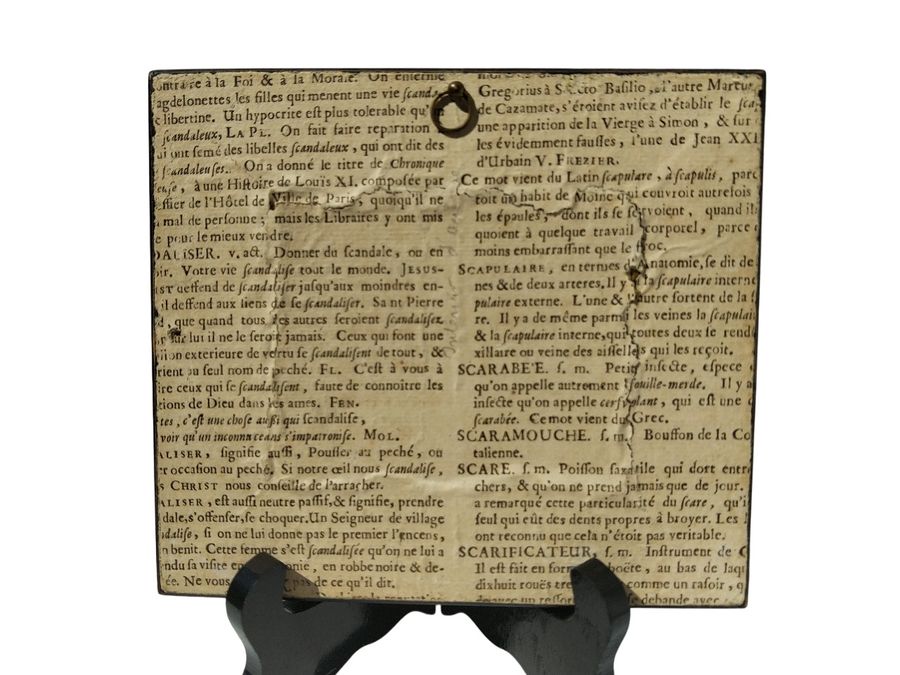 à la Foi & à la Morale. On enferme
agdelonettes les filles qui menent une vie
libertine. Un hypocrite est plus tolerable
scandaleux, LA PL. On fait faire reparation
ont semé des libelles scandaleux, qui ont dit des
scandaleuses. On a donné le titre de Chronique
euse, à une Histoire de Louïs XI. composée par
ffier de l'Hôtel de Ville de Paris, quoiqu'il ne
mal de personne; mais les Libraires y ont mis
e pour le mieux vendre.
DALISER. v. act. Donner du scandale, ou en
ir. Votre vie scandalise tout le monde. JESUS-
IST deffend de scandaliser jusqu'aux moindres en-
il deffend aux liens de se scandaliser. Saint Pierre
d, que quand tous les autres seroient scandalisez
lui il ne le seroit jamais. Ceux qui font une
ion exterieure de vertu se scandalisent de tout, &
rient au seul nom de peché. FL. C'est à vous à
ire ceux qui se scandalisent, faute de connoître les
tions de Dieu dans les ames. FEN.
tes, c'est une chose aussi qui scandalise,
voir qu'un inconnu ceans s'impatronise. MOL.
ALISER, signifie aussi, Pousser au peché, ou
er occasion au peché. Si notre œil nous scandalise,
S CHRIST nous conseille de l'arracher.
ALISER, est aussi neutre passif, & signifie, prendre
dale, s'offenser, se choquer. Un Seigneur de village
ndalise, si on ne lui donne pas le premier l'encens,
n benit. Cette femme s'est scandalisée qu'on ne lui a
ndu sa visite en, en robbe noire & de-
ée. Ne vous pas de ce qu'il dit.
Gregorius à Basilio, l'autre
de Cazamate, s'étoient avisez d'établir le
une apparition de la Vierge à Simon, & sur
les évidemment fausses, l'une de Jean XXI
d'Urbain V. FREZIER.
Ce mot vient du Latin scapulare, à scapulis, parc
toit un habit de Moine qui couvroit autrefois
les épaules, dont ils se servoient, quand il
quoient à quelque travail corporel, parce
moins embarrassant que le froc.
SCAPULAIRE, en termes d'Anatomie, se dit de
nes & de deux arteres. Il y a la scapulaire interne
pulaire externe. L'une & l'autre sortent de la
re. Il y a de même parmi les veines la scapulai
& la scapulaire interne, qui toutes deux se rend
xillaire ou veine des aisselles qui les reçoit.
SCARABE'E. s. m. Petit insecte, espece
qu'on appelle autrement fouille-merde. Il y a
insecte qu'on appelle cerf volant, qui est une
scarabée. Ce mot vient du Grec.
SCARAMOUCHE. s. m. Bouffon de la Co
talienne.
SCARE. s. m. Poisson saxatile qui dort entre
chers, & qu'on ne prend jamais que de jour.
a remarqué cette particularité du scare, qu'i
seul qui eût des dents propres à broyer. Les
ont reconnu que cela n'étoit pas veritable.
SCARIFICATEUR, s. m. Instrument de
Il est fait en boëte, au bas de laqu
dixhuit rouës comme un rasoir, q
avec un se debande avec